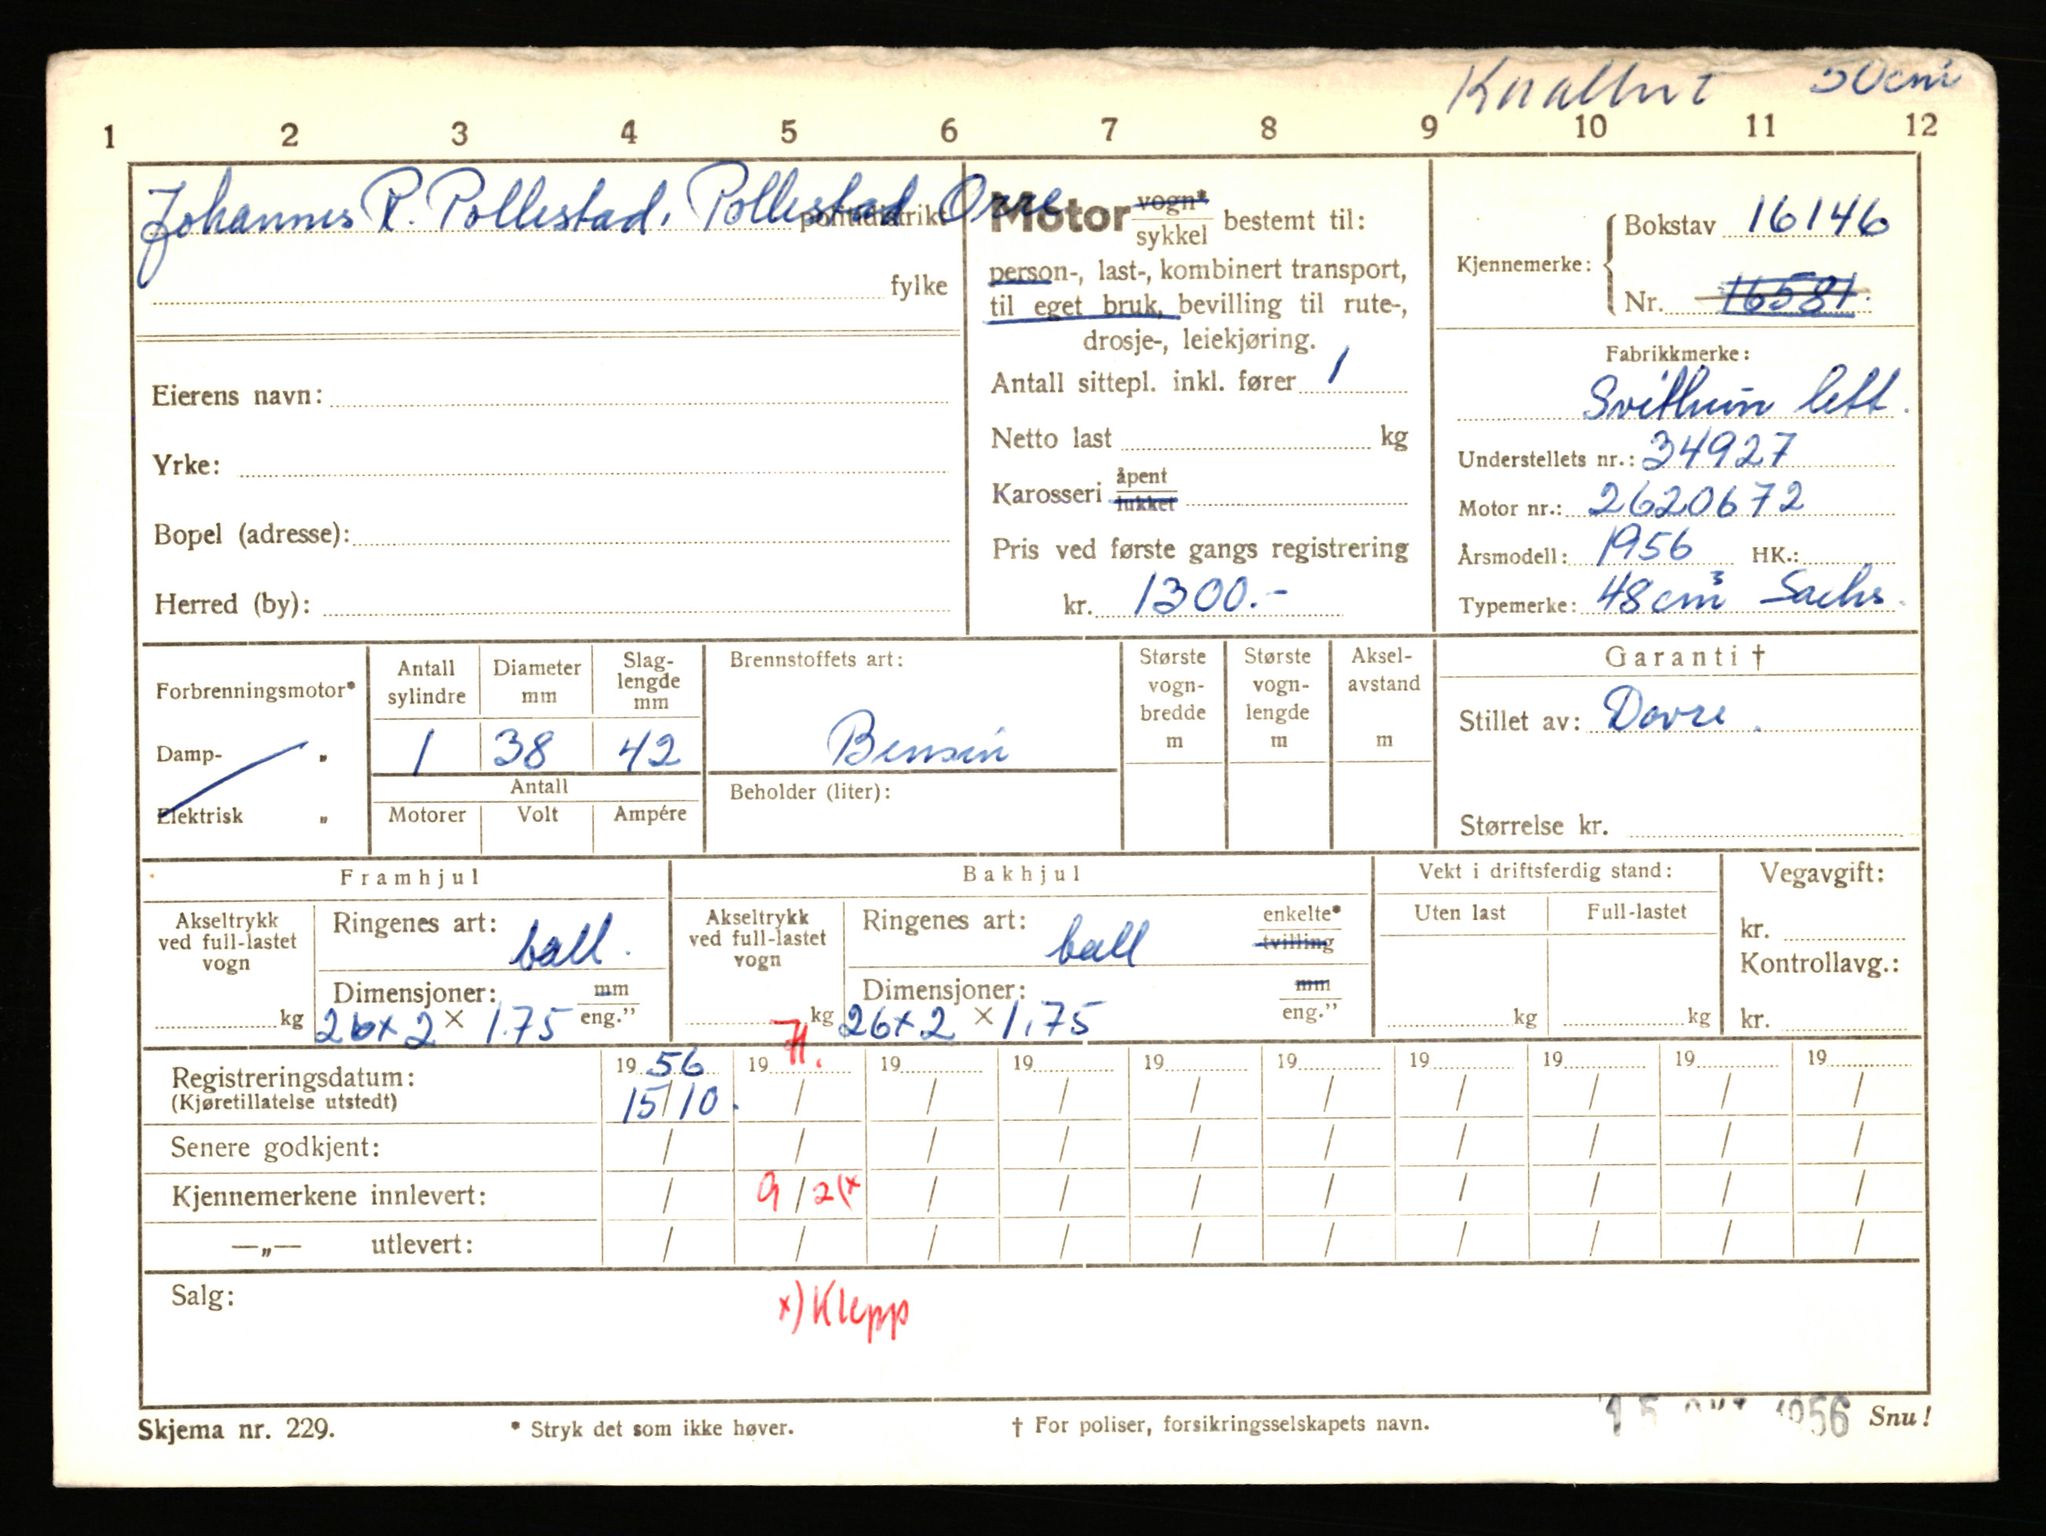 Knallert 50cm³
1 2 3 4 5 6 7 8 9 10 11 12
Johannes R. Pollestad, Pollestad Orre
politidistrikt
fylke
Eierens navn:
Yrke:
Bopel (adresse):
Herred (by):
Motor vogn* sykkel bestemt til:
person-, last-, kombinert transport,
til eget bruk, bevilling til rute-,
drosje-, leiekjøring.
Antall sittepl. inkl. fører 1
Netto last kg
Karosseri åpent lukket
Pris ved første gangs registrering
kr. 1300.-
Kjennemerke: Bokstav 16146
Nr. 16581.
Fabrikkmerke:
Svithun lett.
Understellets nr.: 34927
Motor nr.: 2620672
Årsmodell: 1956 HK.:
Typemerke: 48 cm³ Sachs.
Forbrenningsmotor*
Damp- „
Elektrisk „
Antall sylindre
Diameter mm
Slaglengde mm
1 38 42
Antall
Motorer Volt Ampére
Brennstoffets art:
Bensin
Beholder (liter):
Største vogn-bredde m
Største vogn-lengde m
Aksel-avstand m
Garanti †
Stillet av: Dovre.
Størrelse kr.
Framhjul
Akseltrykk ved full-lastet vogn
kg
Ringenes art: ball.
Dimensjoner: mm eng."
26x2 × 1.75
Bakhjul
Akseltrykk ved full-lastet vogn
kg
Ringenes art: ball enkelte* tvilling
Dimensjoner: mm eng."
26x2 × 1.75
Vekt i driftsferdig stand:
Uten last Full-lastet
kg kg
Vegavgift:
kr.
Kontrollavg.:
kr.
Registreringsdatum: 19 56 19 71. 19 19 19 19 19 19 19 19
(Kjøretillatelse utstedt) 15/10. / / / / / / / / /
Senere godkjent: / / / / / / / / / /
Kjennemerkene innlevert: / 9/2(x / / / / / / / /
—„— utlevert: / / / / / / / / / /
Salg:
x) Klepp
15 OKT 1956
Skjema nr. 229. * Stryk det som ikke høver. † For poliser, forsikringsselskapets navn. Snu!